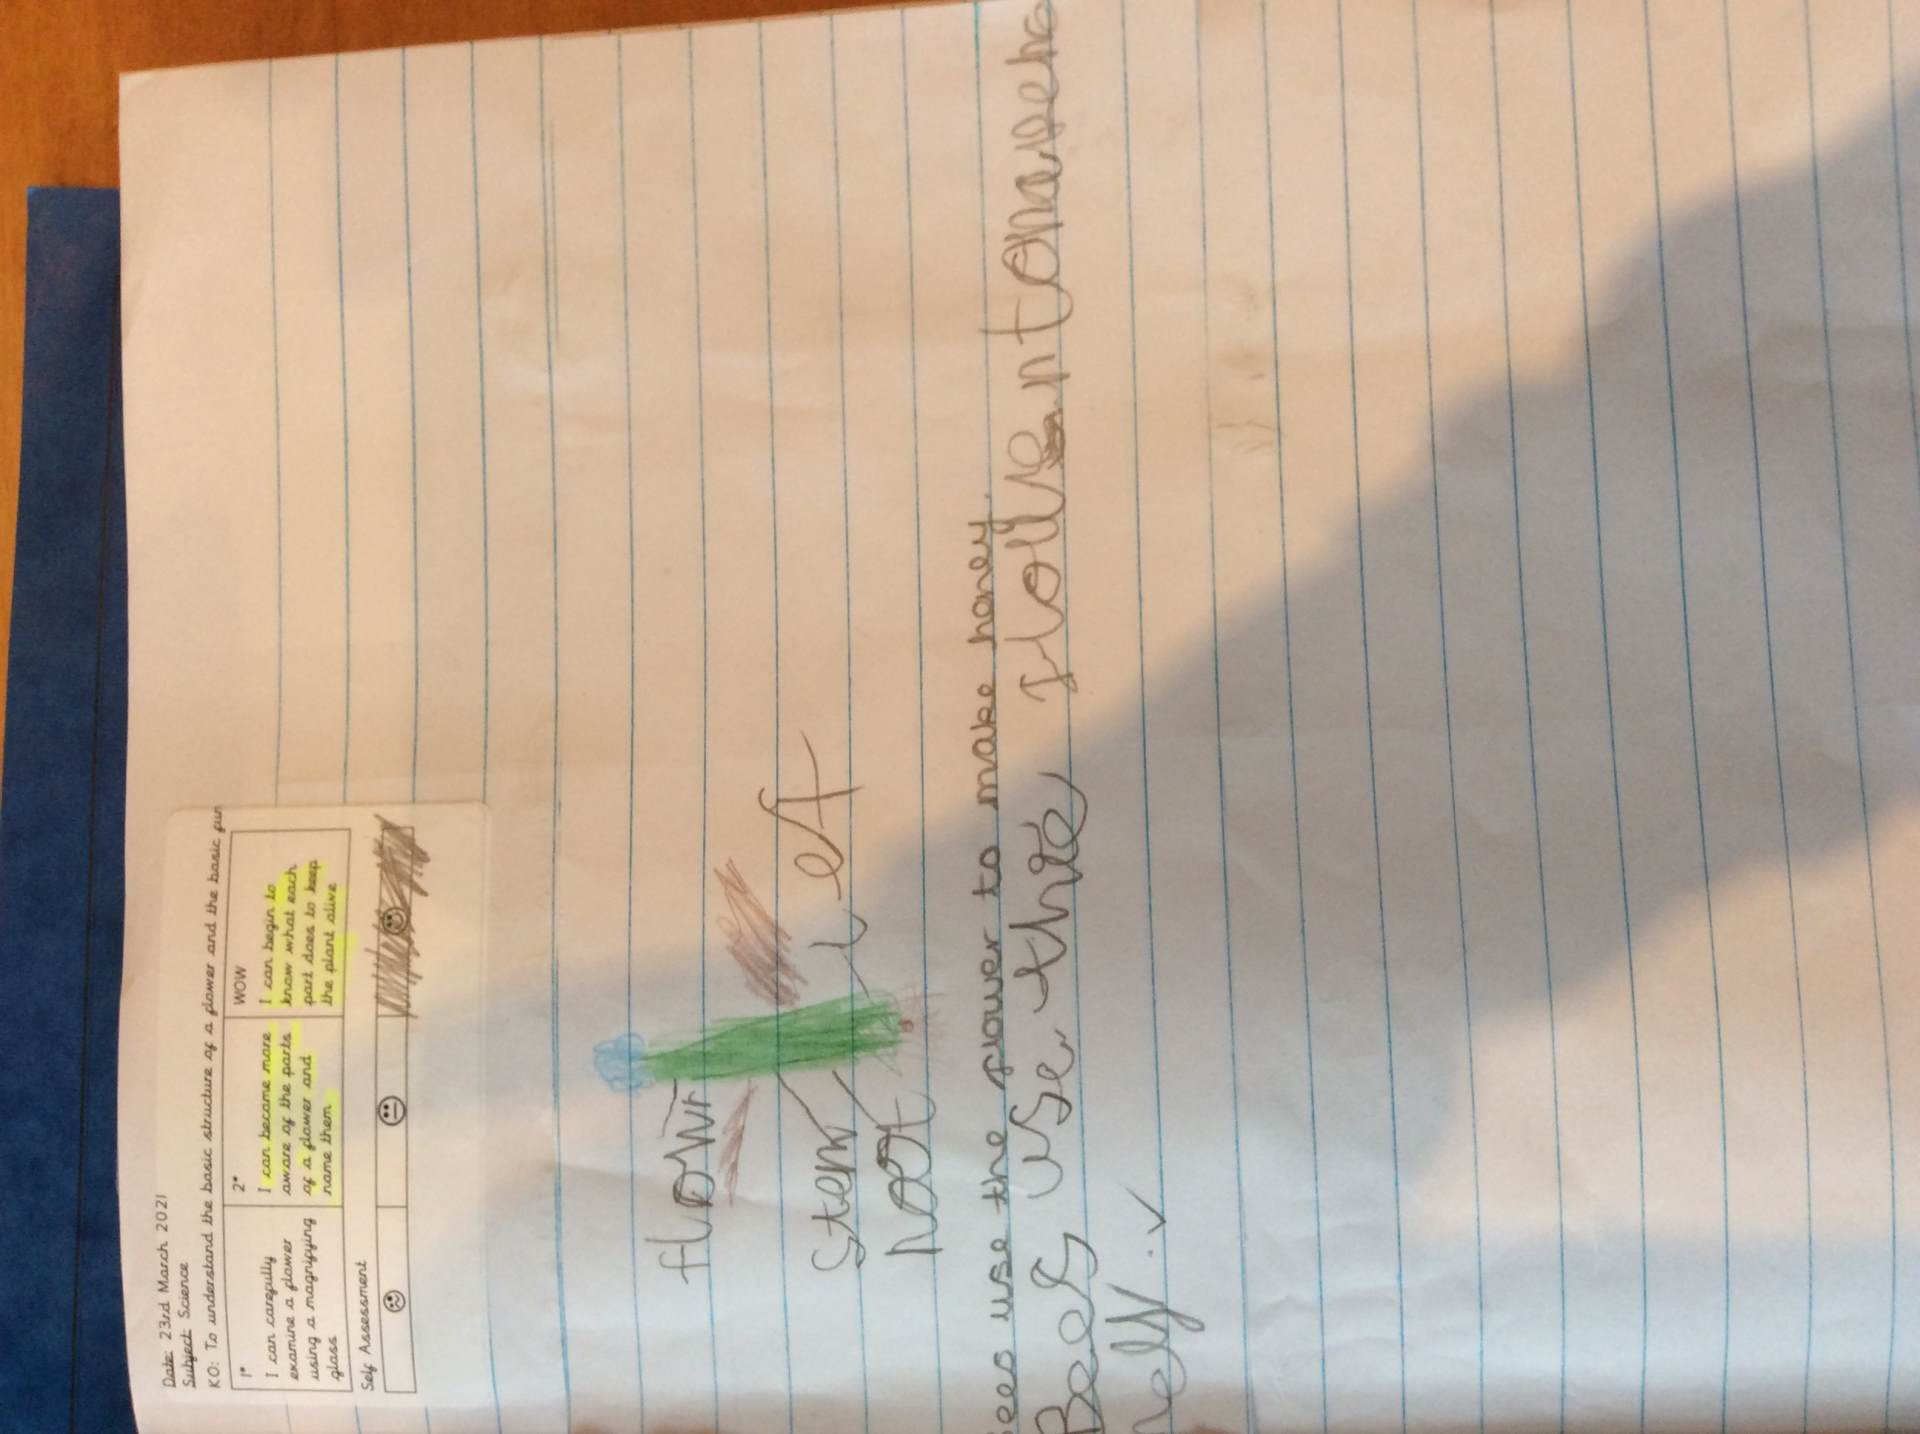 Date: 23rd March 2021
Subject: Science
KO: To understand the basic structure of a flower and the basic fun
1* 2* WOW
I can carefully examine a flower using a magnifying glass
I can become more aware of the parts of a flower and name them
I can begin to know what each part does to keep the plant alive
Self Assessment
flowr
Stem
lef
root
Bees use the flower to make honey.
Bees use the
nely.